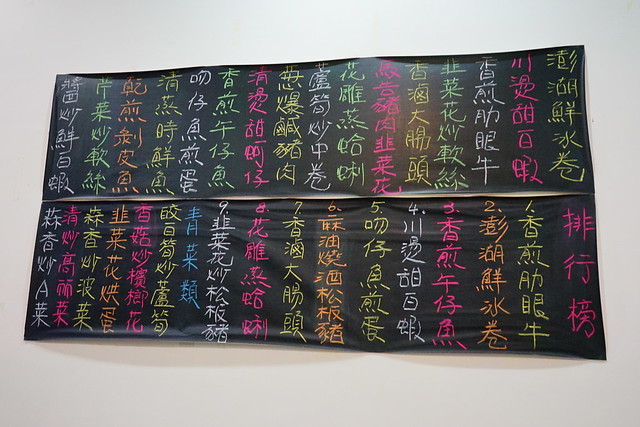 澎湖鮮冰卷
川燙甜百蝦
香煎肋眼牛
韭菜花炒軟絲
香滷大腸頭
馬告豬肉韭菜花
花雕蒸蛤蜊
蘆筍炒中卷
蔥爆鹹豬肉
清燙甜蜊仔
香煎午仔魚
吻仔魚煎蛋
清蒸時鮮魚
乾煎剝皮魚
芹菜炒軟絲
醬炒鮮百蝦
排行榜
1.香煎肋眼牛
2.澎湖鮮冰卷
3.香煎午仔魚
4.川燙甜百蝦
5.吻仔魚煎蛋
6.麻油燒酒松板豬
7.香滷大腸頭
8.花雕蒸蛤蜊
9.韭菜花炒松板豬
青菜類
皎白筍炒蘆筍
香菇炒檳榔花
韭菜花烘蛋
蒜香炒菠菜
清炒高麗菜
蒜香炒A菜